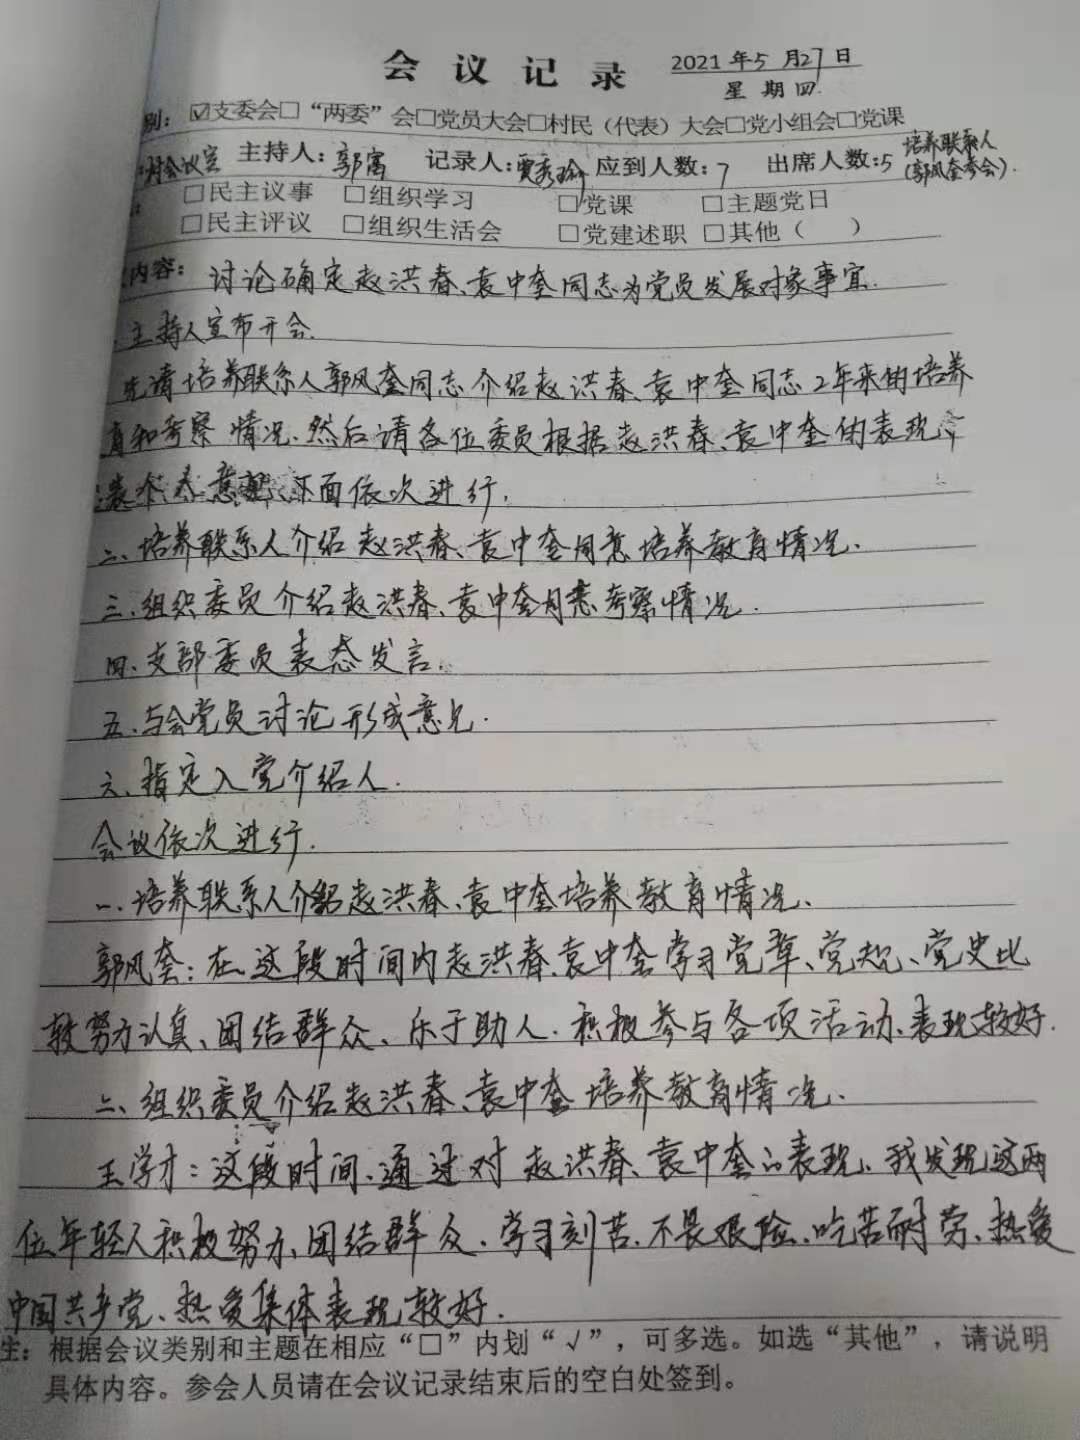 会议记录 2021年5月27日
星期四
别：☑支委会□“两委”会□党员大会□村民（代表）大会□党小组会□党课
村会议室 主持人：郭寓 记录人：贾秀瑜 应到人数：7 出席人数：5 培养联系人（郭风奎参会）.
□民主议事 □组织学习 □党课 □主题党日
□民主评议 □组织生活会 □党建述职 □其他（ ）
内容：讨论确定赵洪春、袁中奎同志为党员发展对象事宜.
主持人宣布开会.
先请培养联系人郭风奎同志介绍赵洪春、袁中奎同志2年来的培养
育和考察情况、然后请各位委员根据赵洪春、袁中奎的表现
表个人意见、下面依次进行.
二、培养联系人介绍赵洪春、袁中奎同志培养教育情况.
三、组织委员介绍赵洪春、袁中奎同志考察情况.
四、支部委员表态发言.
五、与会党员讨论形成意见.
六、指定入党介绍人.
会议依次进行.
一、培养联系人介绍赵洪春、袁中奎培养教育情况、
郭风奎：在这段时间内赵洪春、袁中奎学习党章、党规、党史比
较努力认真、团结群众、乐于助人.积极参与各项活动、表现较好.
二、组织委员介绍赵洪春、袁中奎培养教育情况.
王学才：这段时间、通过对赵洪春、袁中奎的表现、我发现这两
位年轻人积极努力、团结群众、学习刻苦、不畏艰险、吃苦耐劳、热爱
中国共产党、热爱集体表现较好.
注：根据会议类别和主题在相应“□”内划“√”，可多选。如选“其他”，请说明
具体内容。参会人员请在会议记录结束后的空白处签到。